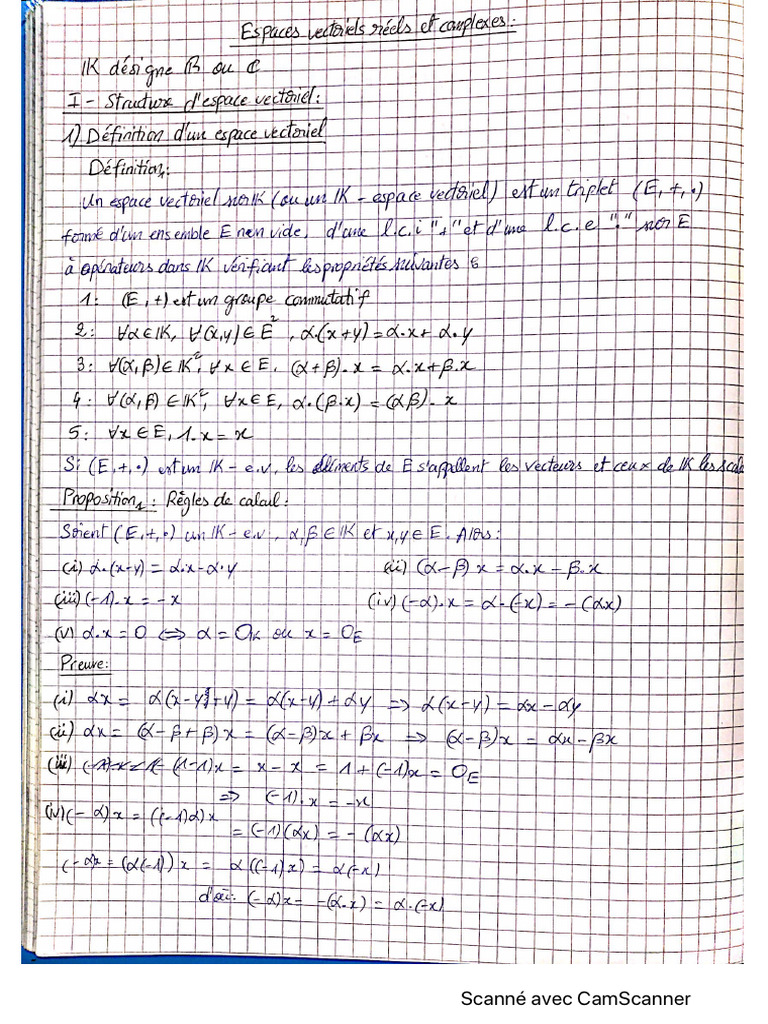 Espaces vectoriels réels et complexes:
IK désigne IR ou ℂ
I - Structure d'espace vectoriel:
1) Définition d'un espace vectoriel
Définition:
Un espace vectoriel sur IK (ou un IK - espace vectoriel) est un triplet (E, +, .)
formé d'un ensemble E non vide, d'une l.c.i "+" et d'une l.c.e "." sur E
à opérateurs dans IK vérifiant les propriétés suivantes :
1: (E, +) est un groupe commutatif
2: ∀α∈IK, ∀(x,y)∈E², α.(x+y) = α.x + α.y
3: ∀(α,β)∈IK², ∀x∈E, (α+β).x = α.x+β.x
4: ∀(α,β)∈IK², ∀x∈E, α.(β.x) = (αβ).x
5: ∀x∈E, 1.x = x
Si (E,+,.) est un IK - e.v, les éléments de E s'appellent les vecteurs et ceux de IK les scala
Proposition: Règles de calcul:
Soient (E,+,.) un IK - e.v, α,β∈IK et x,y∈E. Alors:
(i) α.(x-y) = α.x-α.y (ii) (α-β)x = α.x-β.x
(iii) (-1).x = -x (iv) (-α).x = α.(-x) = -(αx)
(v) α.x = 0 ⟺ α = 0IK ou x = 0E
Preuve:
(i) αx = α(x-y+y) = α(x-y)+αy ⟹ α(x-y) = αx-αy
(ii) αx = (α-β+β)x = (α-β)x+βx ⟹ (α-β)x = αx-βx
(iii) (1-1)x = x-x = 1+(-1)x = 0E
⟹ (-1).x = -x
(iv) (-α)x = ((-1)α)x
= (-1)(αx) = -(αx)
(-αx = (α(-1))x = α((-1)x) = α(-x)
d'où: (-α)x = -(α.x) = α.(-x)
Scanné avec CamScanner